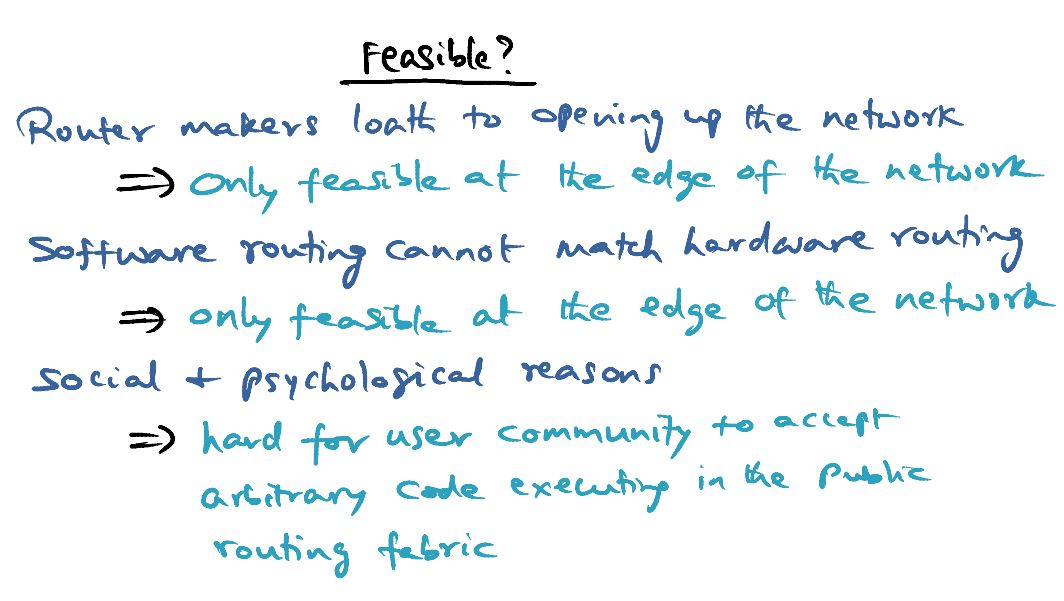 Feasible?
Router makers loath to opening up the network
⇒ Only feasible at the edge of the network
Software routing cannot match hardware routing
⇒ only feasible at the edge of the network
Social + psychological reasons
⇒ hard for user community to accept
arbitrary code executing in the public
routing fabric